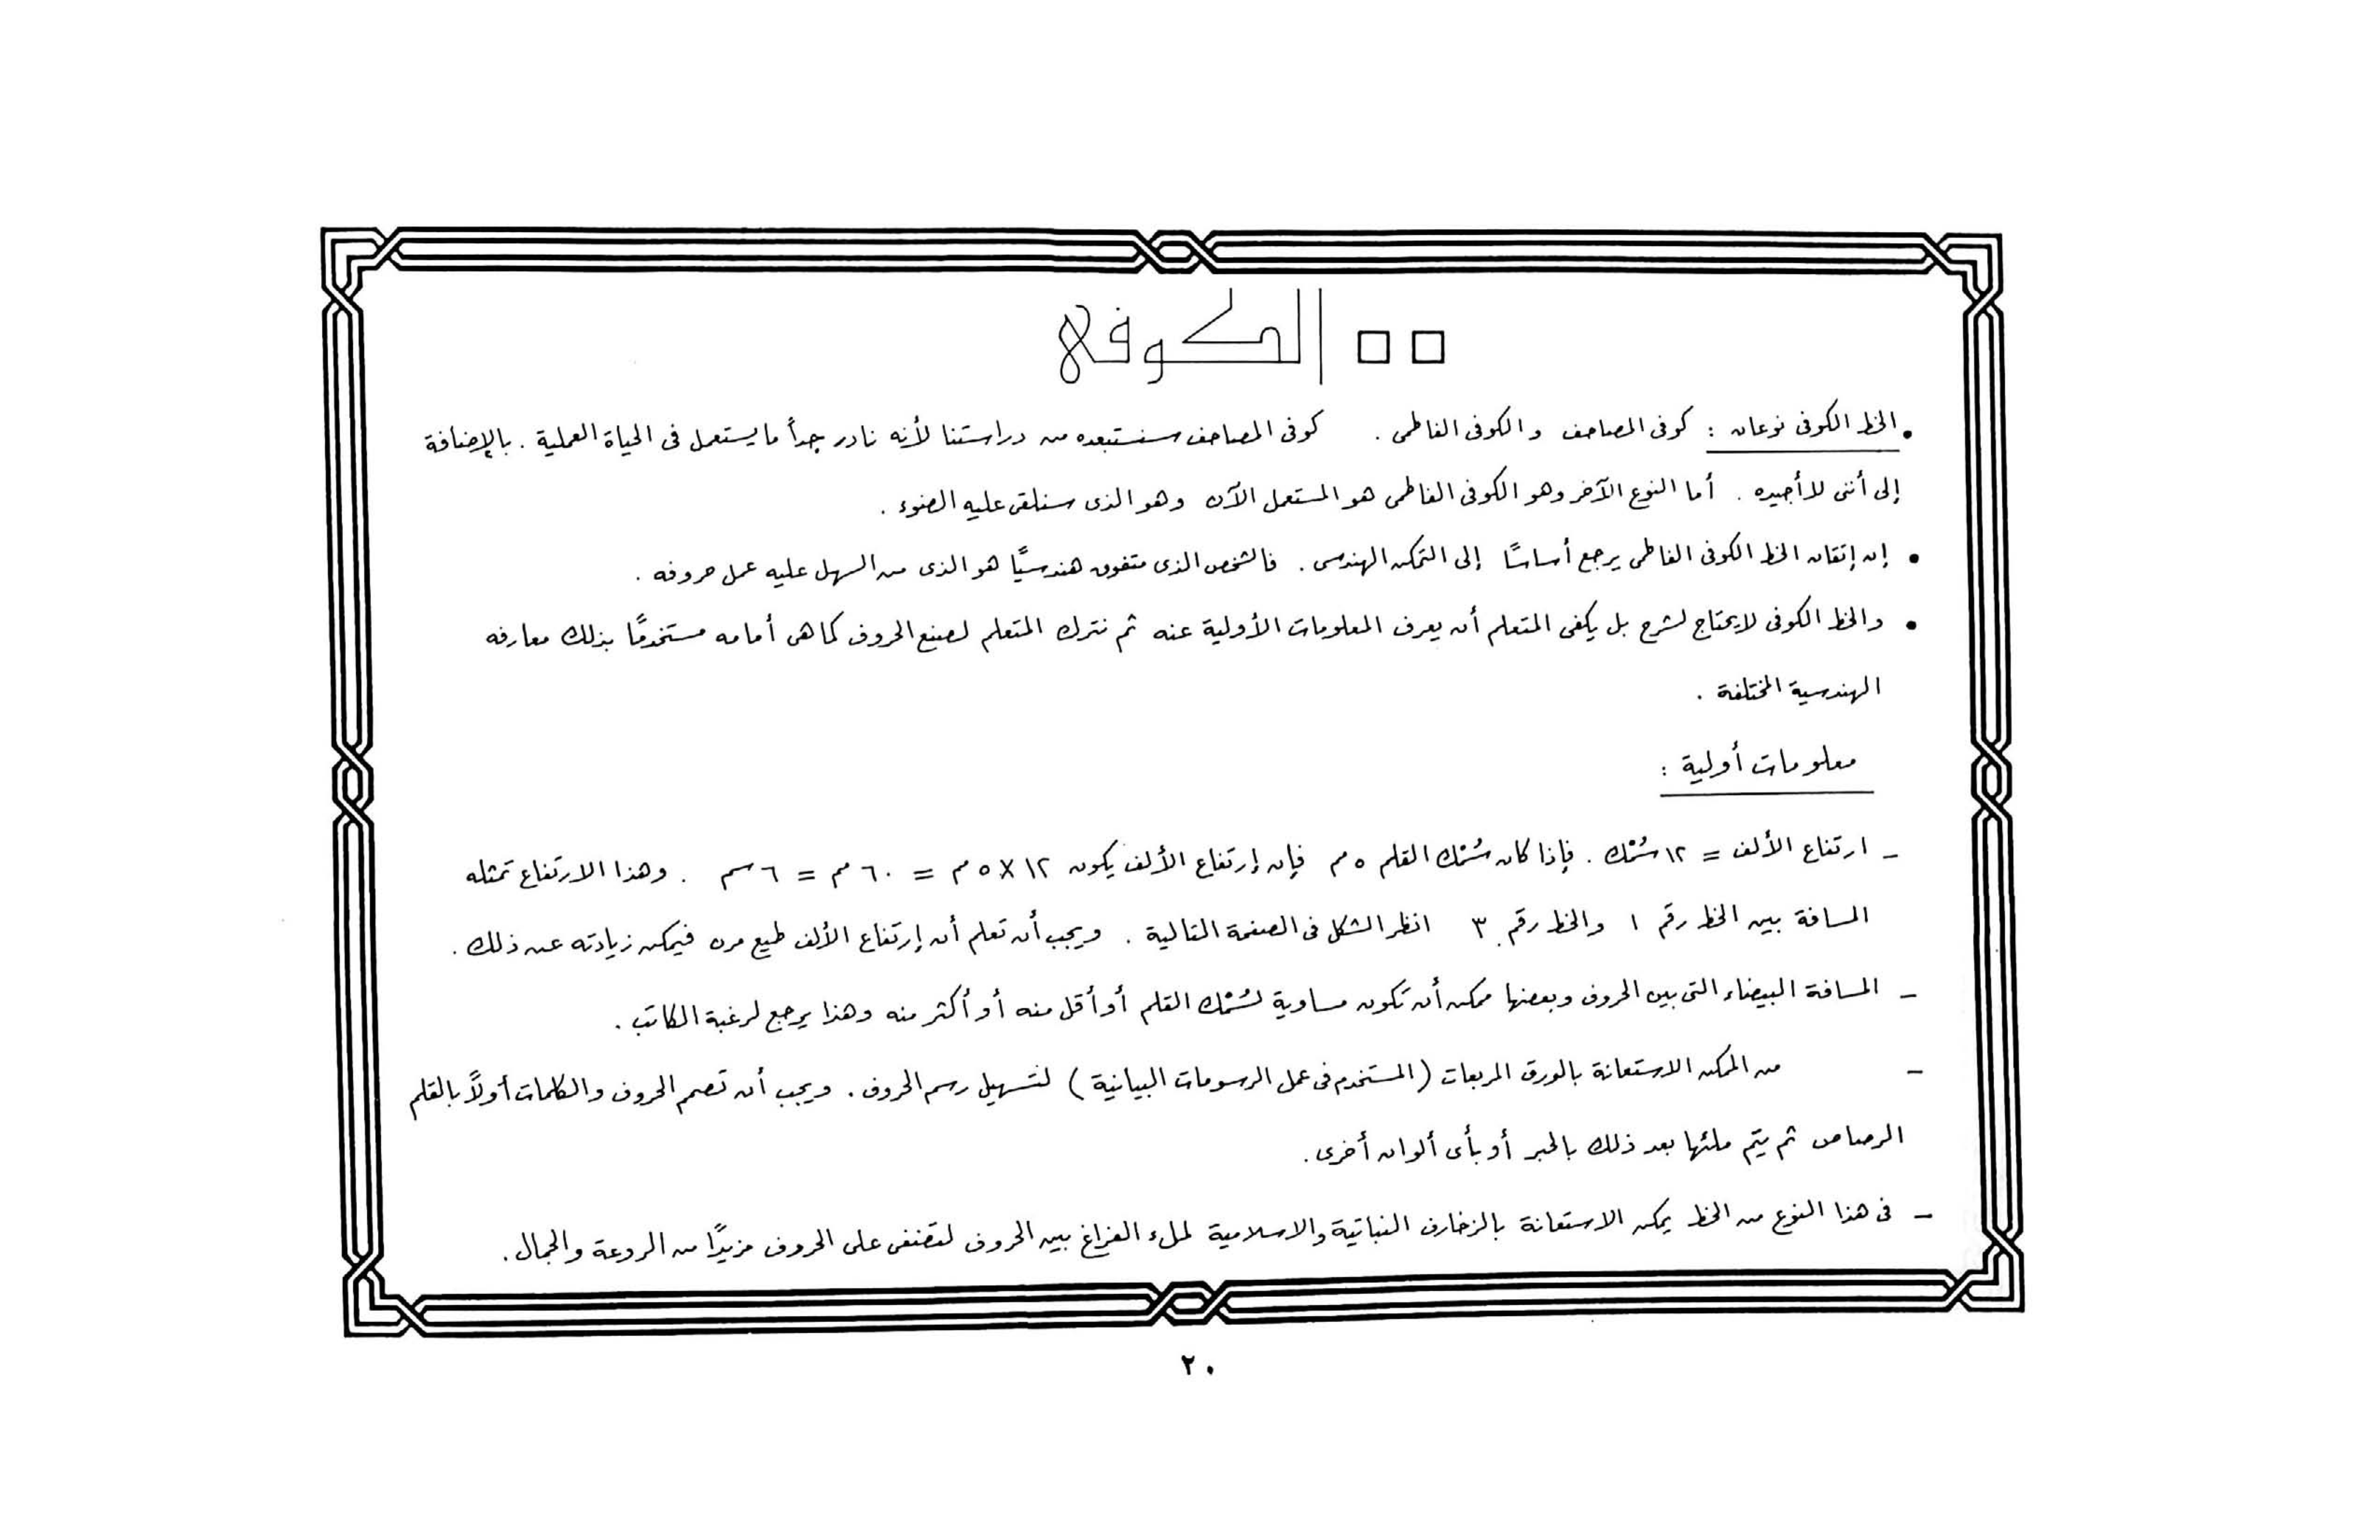 الكوفى
• الخط الكوفى نوعان : كوفى المصاحف والكوفى الفاطمى . كوفى المصاحف سنستبعده من دراستنا لأنه نادر جداً ما يستعمل فى الحياة العملية . بالإضافة
إلى أننى لا أجيده . أما النوع الآخر وهو الكوفى الفاطمى هو المستعمل الآن وهو الذى سنلقى عليه الضوء .
• إن إتقان الخط الكوفى الفاطمى يرجع أساسًا إلى التمكن الهندسى . فالشخص الذى متفوق هندسيًا هو الذى من السهل عليه عمل حروفه .
• والخط الكوفى لا يحتاج لشرح بل يكفى المتعلم أن يعرف المعلومات الأولية عنه ثم نترك المتعلم لصنع الحروف كما هى أمامه مستخدمًا بذلك معارفه
الهندسية المختلفة .
معلومات أولية :
- ارتفاع الألف = ١٢ سُمْك . فإذا كان سُمْك القلم ٥ مم فإن إرتفاع الألف يكون ١٢ × ٥ مم = ٦٠ مم = ٦ سم . وهذا الارتفاع تمثله
المسافة بين الخط رقم ١ والخط رقم ٣ انظر الشكل فى الصفحة التالية . ويجب أن تعلم أن إرتفاع الألف طيع مرن فيمكن زيادته عن ذلك .
- المسافة البيضاء التى بين الحروف وبعضها ممكن أن تكون مساوية لسُمْك القلم أو أقل منه أو أكثر منه وهذا يرجع لرغبة الكاتب .
- من الممكن الاستعانة بالورق المربعات ( المستخدم فى عمل الرسومات البيانية ) لتسهيل رسم الحروف . ويجب أن تصمم الحروف والكلمات أولاً بالقلم
الرصاص ثم يتم ملئها بعد ذلك بالحبر أو بأى ألوان أخرى .
- فى هذا النوع من الخط يمكن الاستعانة بالزخارف النباتية والاسلامية لملء الفراغ بين الحروف لتضفى على الحروف مزيدًا من الروعة والجمال .
٢٠